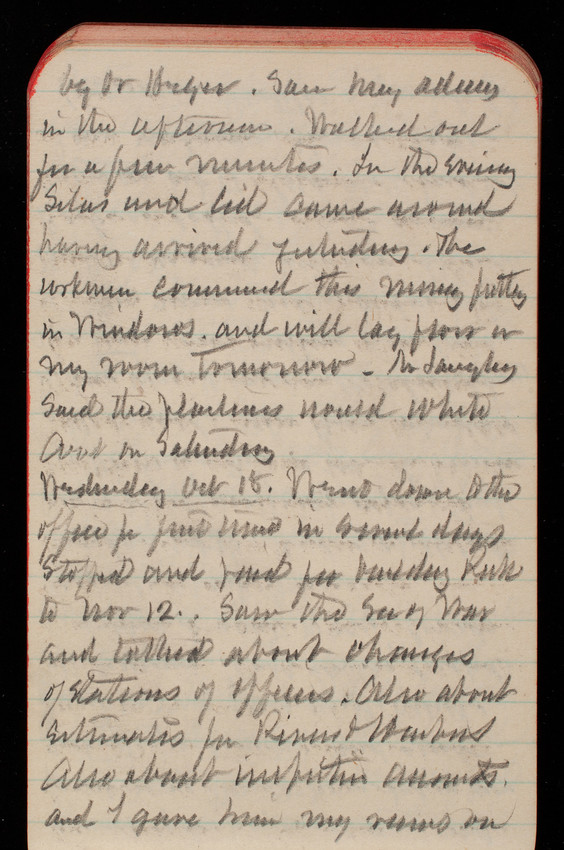 by Dr Heger. Saw
in the afternoon. Walked out
for a few minutes. In the evening
Silas and came around
having arrived yesterday. The
workmen commenced this morning putting
in Windows. and will lay floor in
my room tomorrow - Mr Langley
said the plasterers would White
Coat on Saturday
Wednesday Oct 18. Went down to the
office for first time in several days
Stopped and paid for
to Nov 12. Saw the Secy War
and talked about changes
of Stations of Officers. Also about
Estimates for River & Harbors
Also about accounts.
and I gave him my views on